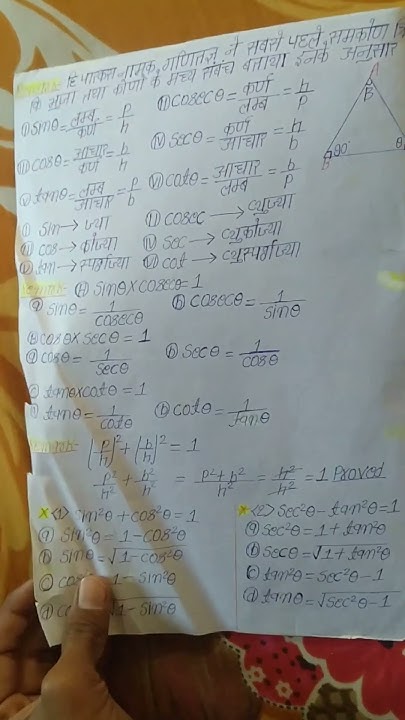 हिपार्कस नामक गणितज्ञ ने सबसे पहले समकोण
कि भुजा तथा कोणों के मध्य संबंध बताया इनके अनुसार
A
B
90° θ
① sinθ = लम्ब/कर्ण = p/h ⑪ cosecθ = कर्ण/लम्ब = h/p
⑪⑪ cosθ = आधार/कर्ण = b/h ⑭ secθ = कर्ण/आधार = h/b
Ⓥ tanθ = लम्ब/आधार = p/b Ⓥ cotθ = आधार/लम्ब = b/p
① sin → ज्या ⑪ cosec → व्युज्या
cos → कोज्या Ⓘⓥ sec → व्युकोज्या
tan → स्पर्शज्या cot → व्युस्पर्शज्या
sinθ × cosecθ = 1
ⓐ sinθ = 1/cosecθ ⓑ cosecθ = 1/sinθ
cosθ × secθ = 1
ⓐ cosθ = 1/secθ ⓑ secθ = 1/cosθ
ⓒ tanθ × cotθ = 1
tanθ = 1/cotθ ⓑ cotθ = 1/tanθ
(p/h)² + (b/h)² = 1
p²/h² + b²/h² = p²+b²/h² = h²/h² = 1 Proved
* <1> sin²θ + cos²θ = 1
ⓐ sin²θ = 1 - cos²θ
ⓑ sinθ = √1 - cos²θ
ⓒ cos 1 - sin²θ
ⓓ √1 - sin²θ
* <2> sec²θ - tan²θ = 1
ⓐ sec²θ = 1 + tan²θ
ⓑ secθ = √1 + tan²θ
ⓒ tan²θ = sec²θ - 1
ⓓ tanθ = √sec²θ - 1